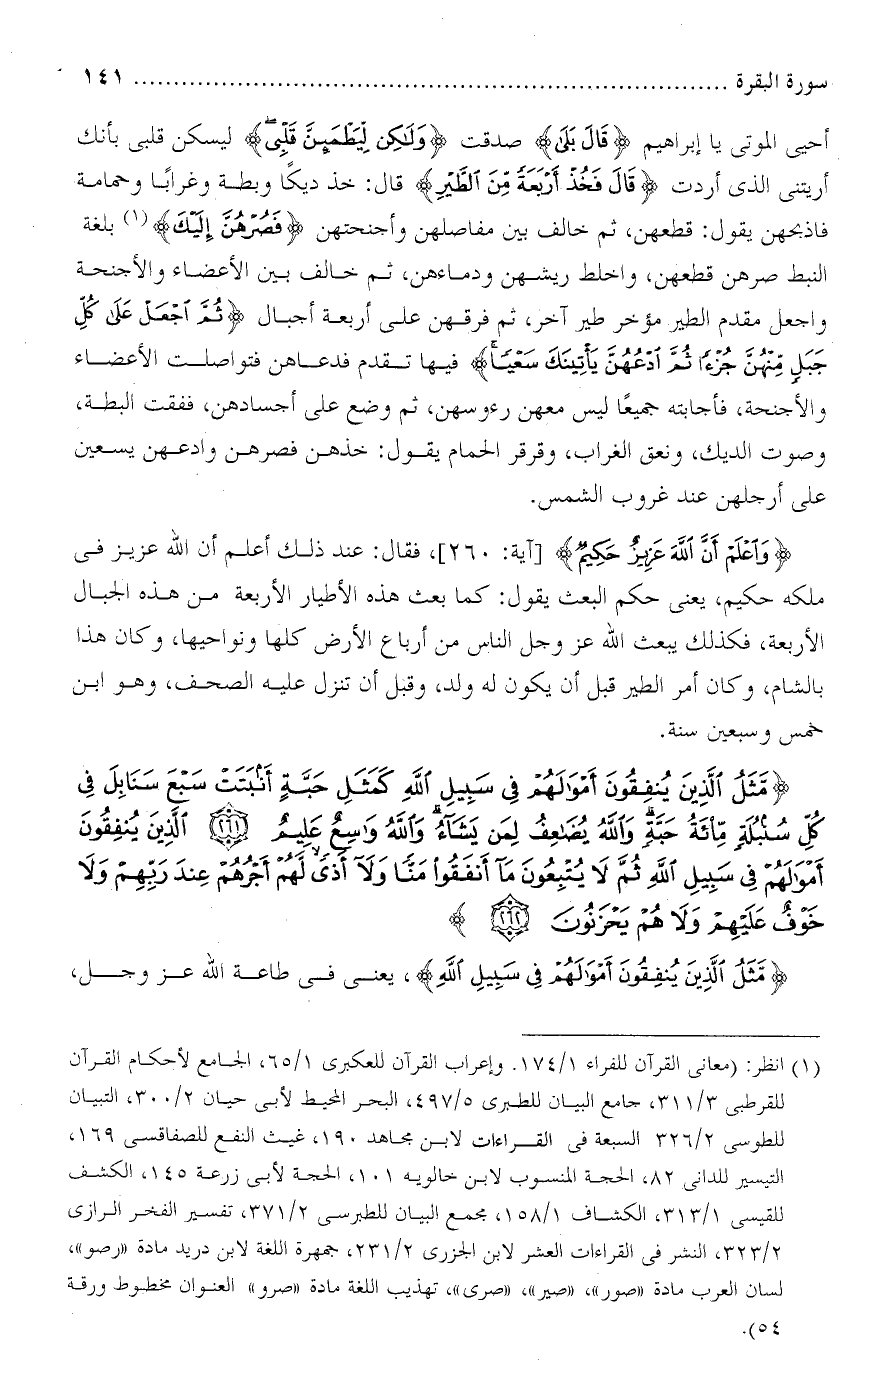 سورة البقرة ........................................................................... ١٤١
أحيى الموتى يا إبراهيم ﴿قَالَ بَلَىٰ﴾ صدقت ﴿وَلَٰكِن لِّيَطْمَئِنَّ قَلْبِى﴾ ليسكن قلبى بأنك
أريتنى الذى أردت ﴿قَالَ فَخُذْ أَرْبَعَةً مِّنَ ٱلطَّيْرِ﴾ قال: خذ ديكًا وبطة وغرابًا وحمامة
فاذبحهن يقول: قطعهن، ثم خالف بين مفاصلهن وأجنحتهن ﴿فَصُرْهُنَّ إِلَيْكَ﴾(١) بلغة
النبط صرهن قطعهن، واخلط ريشهن ودماءهن، ثم خالف بين الأعضاء والأجنحة
واجعل مقدم الطير مؤخر طير آخر، ثم فرقهن على أربعة أجبال ﴿ثُمَّ ٱجْعَلْ عَلَىٰ كُلِّ
جَبَلٍ مِّنْهُنَّ جُزْءًا ثُمَّ ٱدْعُهُنَّ يَأْتِينَكَ سَعْيًا﴾ فيها تقدم فدعاهن فتواصلت الأعضاء
والأجنحة، فأجابته جميعًا ليس معهن رءوسهن، ثم وضع على أجسادهن، ففقت البطة،
وصوت الديك، ونعق الغراب، وقرقر الحمام يقول: خذهن فصرهن وادعهن يسعين
على أرجلهن عند غروب الشمس.
﴿وَٱعْلَمْ أَنَّ ٱللَّهَ عَزِيزٌ حَكِيمٌ﴾ [آية: ٢٦٠]، فقال: عند ذلك أعلم أن الله عزيز فى
ملكه حكيم، يعنى حكم البعث يقول: كما بعث هذه الأطيار الأربعة من هذه الجبال
الأربعة، فكذلك يبعث الله عز وجل الناس من أرباع الأرض كلها ونواحيها، وكان هذا
بالشام، وكان أمر الطير قبل أن يكون له ولد، وقبل أن تنزل عليه الصحف، وهو ابن
خمس وسبعين سنة.
﴿مَّثَلُ ٱلَّذِينَ يُنفِقُونَ أَمْوَٰلَهُمْ فِى سَبِيلِ ٱللَّهِ كَمَثَلِ حَبَّةٍ أَنۢبَتَتْ سَبْعَ سَنَابِلَ فِى
كُلِّ سُنۢبُلَةٍ مِّا۟ئَةُ حَبَّةٍ وَٱللَّهُ يُضَٰعِفُ لِمَن يَشَآءُ وَٱللَّهُ وَٰسِعٌ عَلِيمٌ ٢٦١ ٱلَّذِينَ يُنفِقُونَ
أَمْوَٰلَهُمْ فِى سَبِيلِ ٱللَّهِ ثُمَّ لَا يُتْبِعُونَ مَآ أَنفَقُوا۟ مَنًّا وَلَآ أَذًى لَّهُمْ أَجْرُهُمْ عِندَ رَبِّهِمْ وَلَا
خَوْفٌ عَلَيْهِمْ وَلَا هُمْ يَحْزَنُونَ ٢٦٢ ﴾
﴿مَّثَلُ ٱلَّذِينَ يُنفِقُونَ أَمْوَٰلَهُمْ فِى سَبِيلِ ٱللَّهِ﴾، يعنى فى طاعة الله عز وجل،
(١) انظر: (معانى القرآن للفراء ١٧٤/١. وإعراب القرآن للعكبرى ٦٥/١، الجامع لأحكام القرآن
للقرطبى ٣١١/٣، جامع البيان للطبرى ٤٩٧/٥، البحر المحيط لأبى حيان ٣٠٠/٢، التبيان
للطوسى ٣٢٦/٢ السبعة فى القراءات لابن مجاهد ١٩٠، غيث النفع للصفاقسى ١٦٩،
التيسير للدانى ٨٢، الحجة المنسوب لابن خالويه ١٠١، الحجة لأبى زرعة ١٤٥، الكشف
للقيسى ٣١٣/١، الكشاف ١٥٨/١، مجمع البيان للطبرسى ٣٧١/٢، تفسير الفخر الرازى
٣٢٣/٢، النشر فى القراءات العشر لابن الجزرى ٢٣١/٢، جمهرة اللغة لابن دريد مادة «رصو»،
لسان العرب مادة «صور»، «صير»، «صرى»، تهذيب اللغة مادة «صرو» العنوان مخطوط ورقة
٥٤).